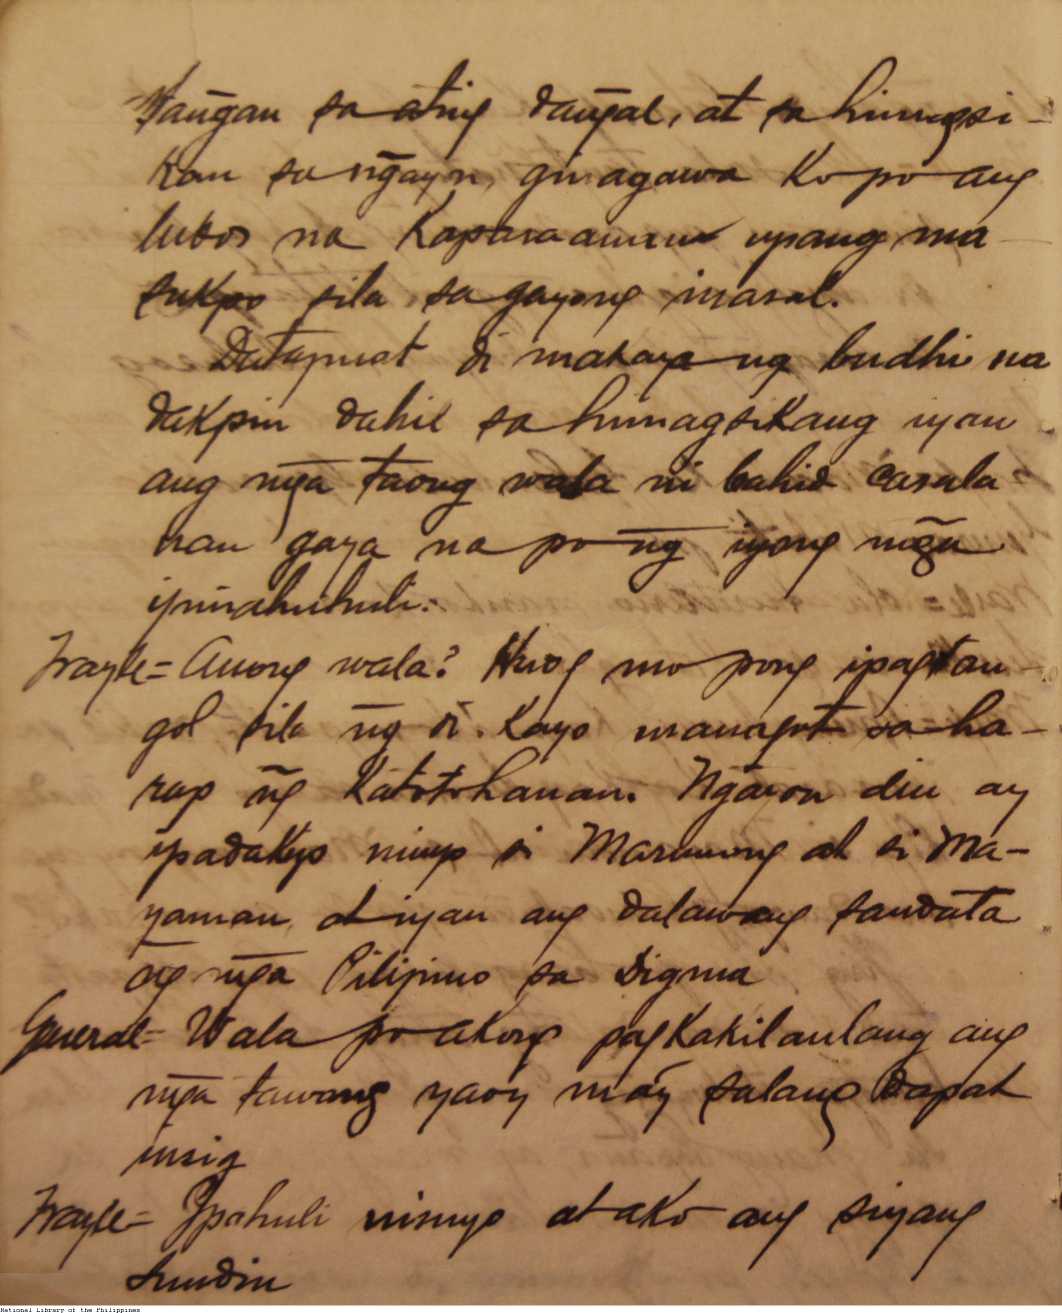 tangan sa ating dangal, at sa himagsi-
kan sa ngayon, ginagawa ko po ang
lubos na kaparaanan upang ma
sukpo sila sa gayong inasal.
Datapuat di makaya ng budhi na
dakpin dahil sa himagsikang iyan
ang m̃ga taong wala ni bahid casala
nan gaya na po ng̃ iyong m̃ga
ipinahuhuli.
Frayle = Anong wala? Huag mo pong ipagtan-
gol sila ng̃ di kayo managot sa ha-
rap ng̃ Katotohanan. Ngayon din ay
ipadakip ninyo si Marunong at si Ma-
yaman, at iyan ang dalawang sandata
ng̃ m̃ga Pilipino sa Digma
General = Wala po akong pagkakilanlang ang
m̃ga tawong yaoy máy salang dapat
usig
Frayle = Ipahuli ninyo at ako ang siyang
sundin
National Library of the Philippines